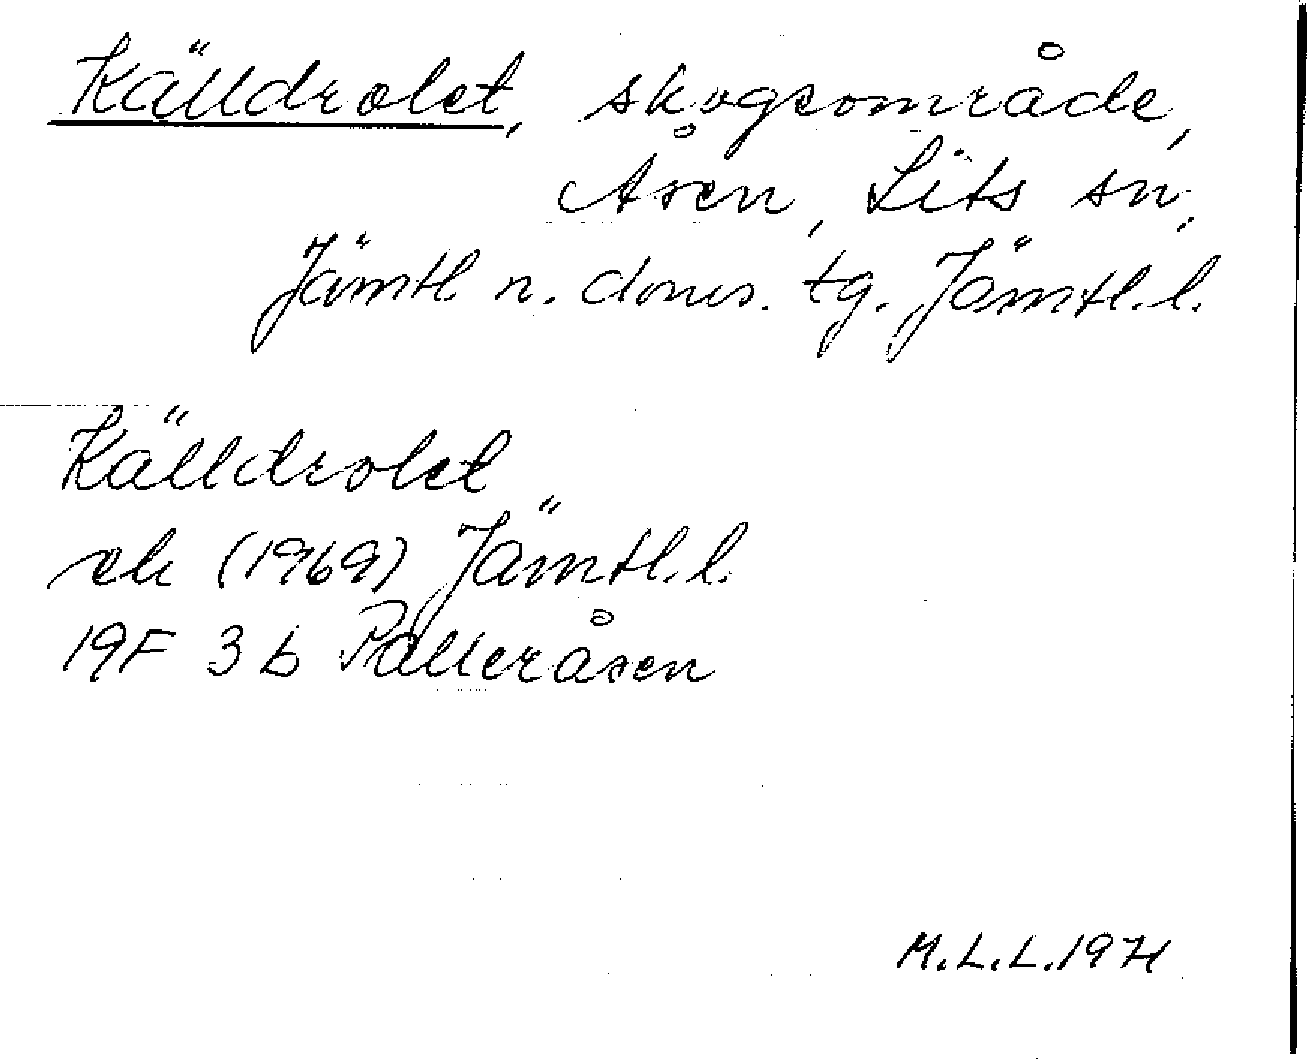 Källdrolet, skogsområde,
Åsen, Lits sn,
Jämtl n. doms. tg. Jämtl.l.
Källdrolet
ek (1969) Jämtl.l.
19F 3 b Palleråsen
M.L.L. 1971